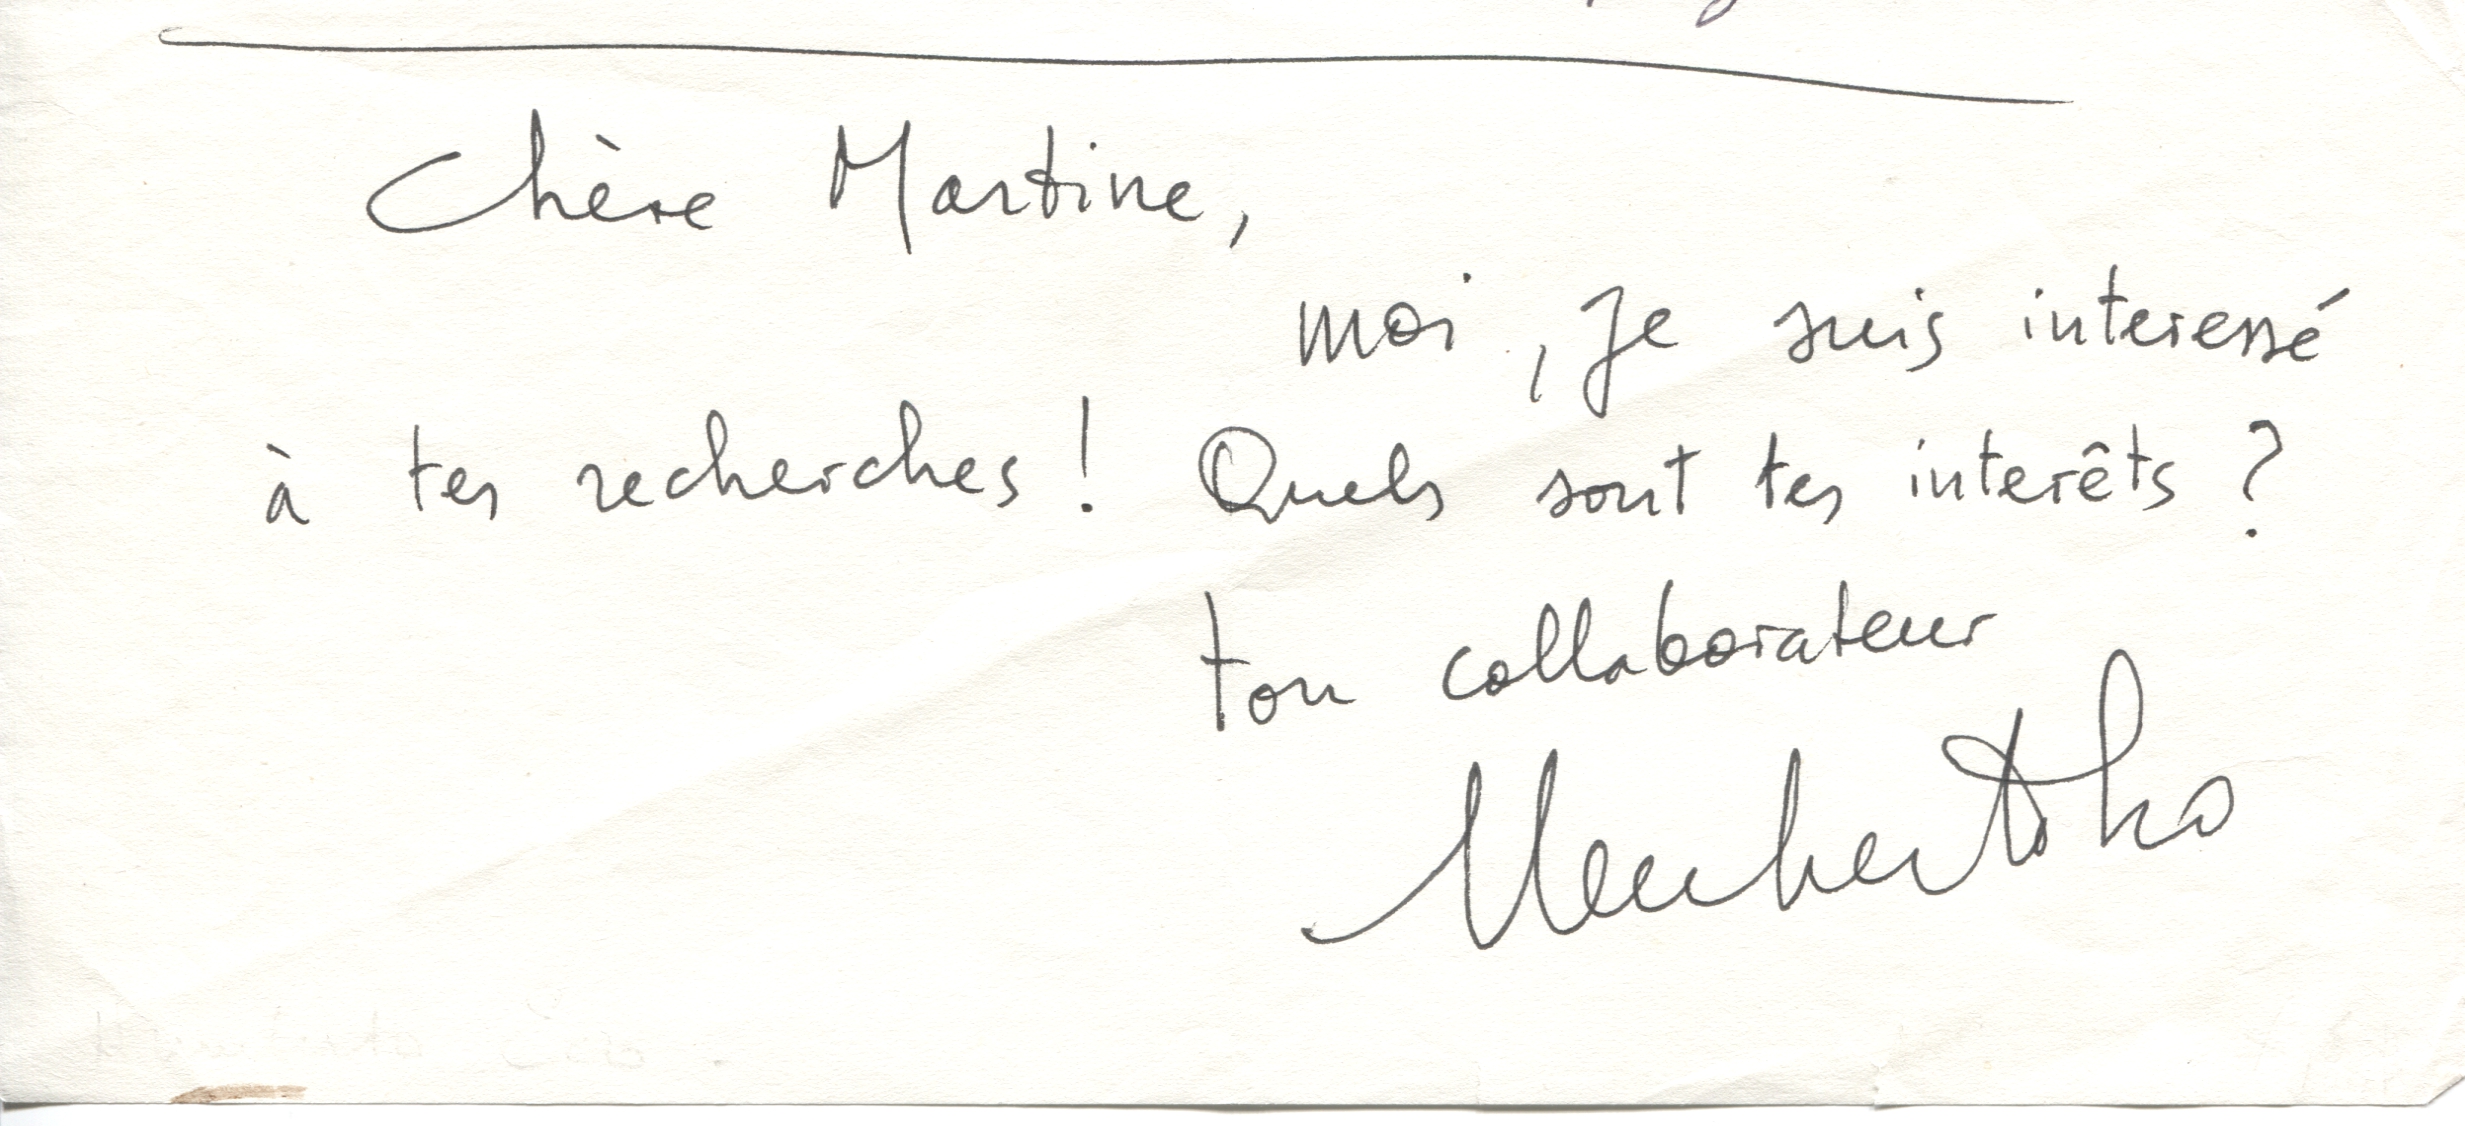 Chère Martine,
moi, je suis interessé
à tes recherches! Quels sont tes interêts?
ton collaborateur